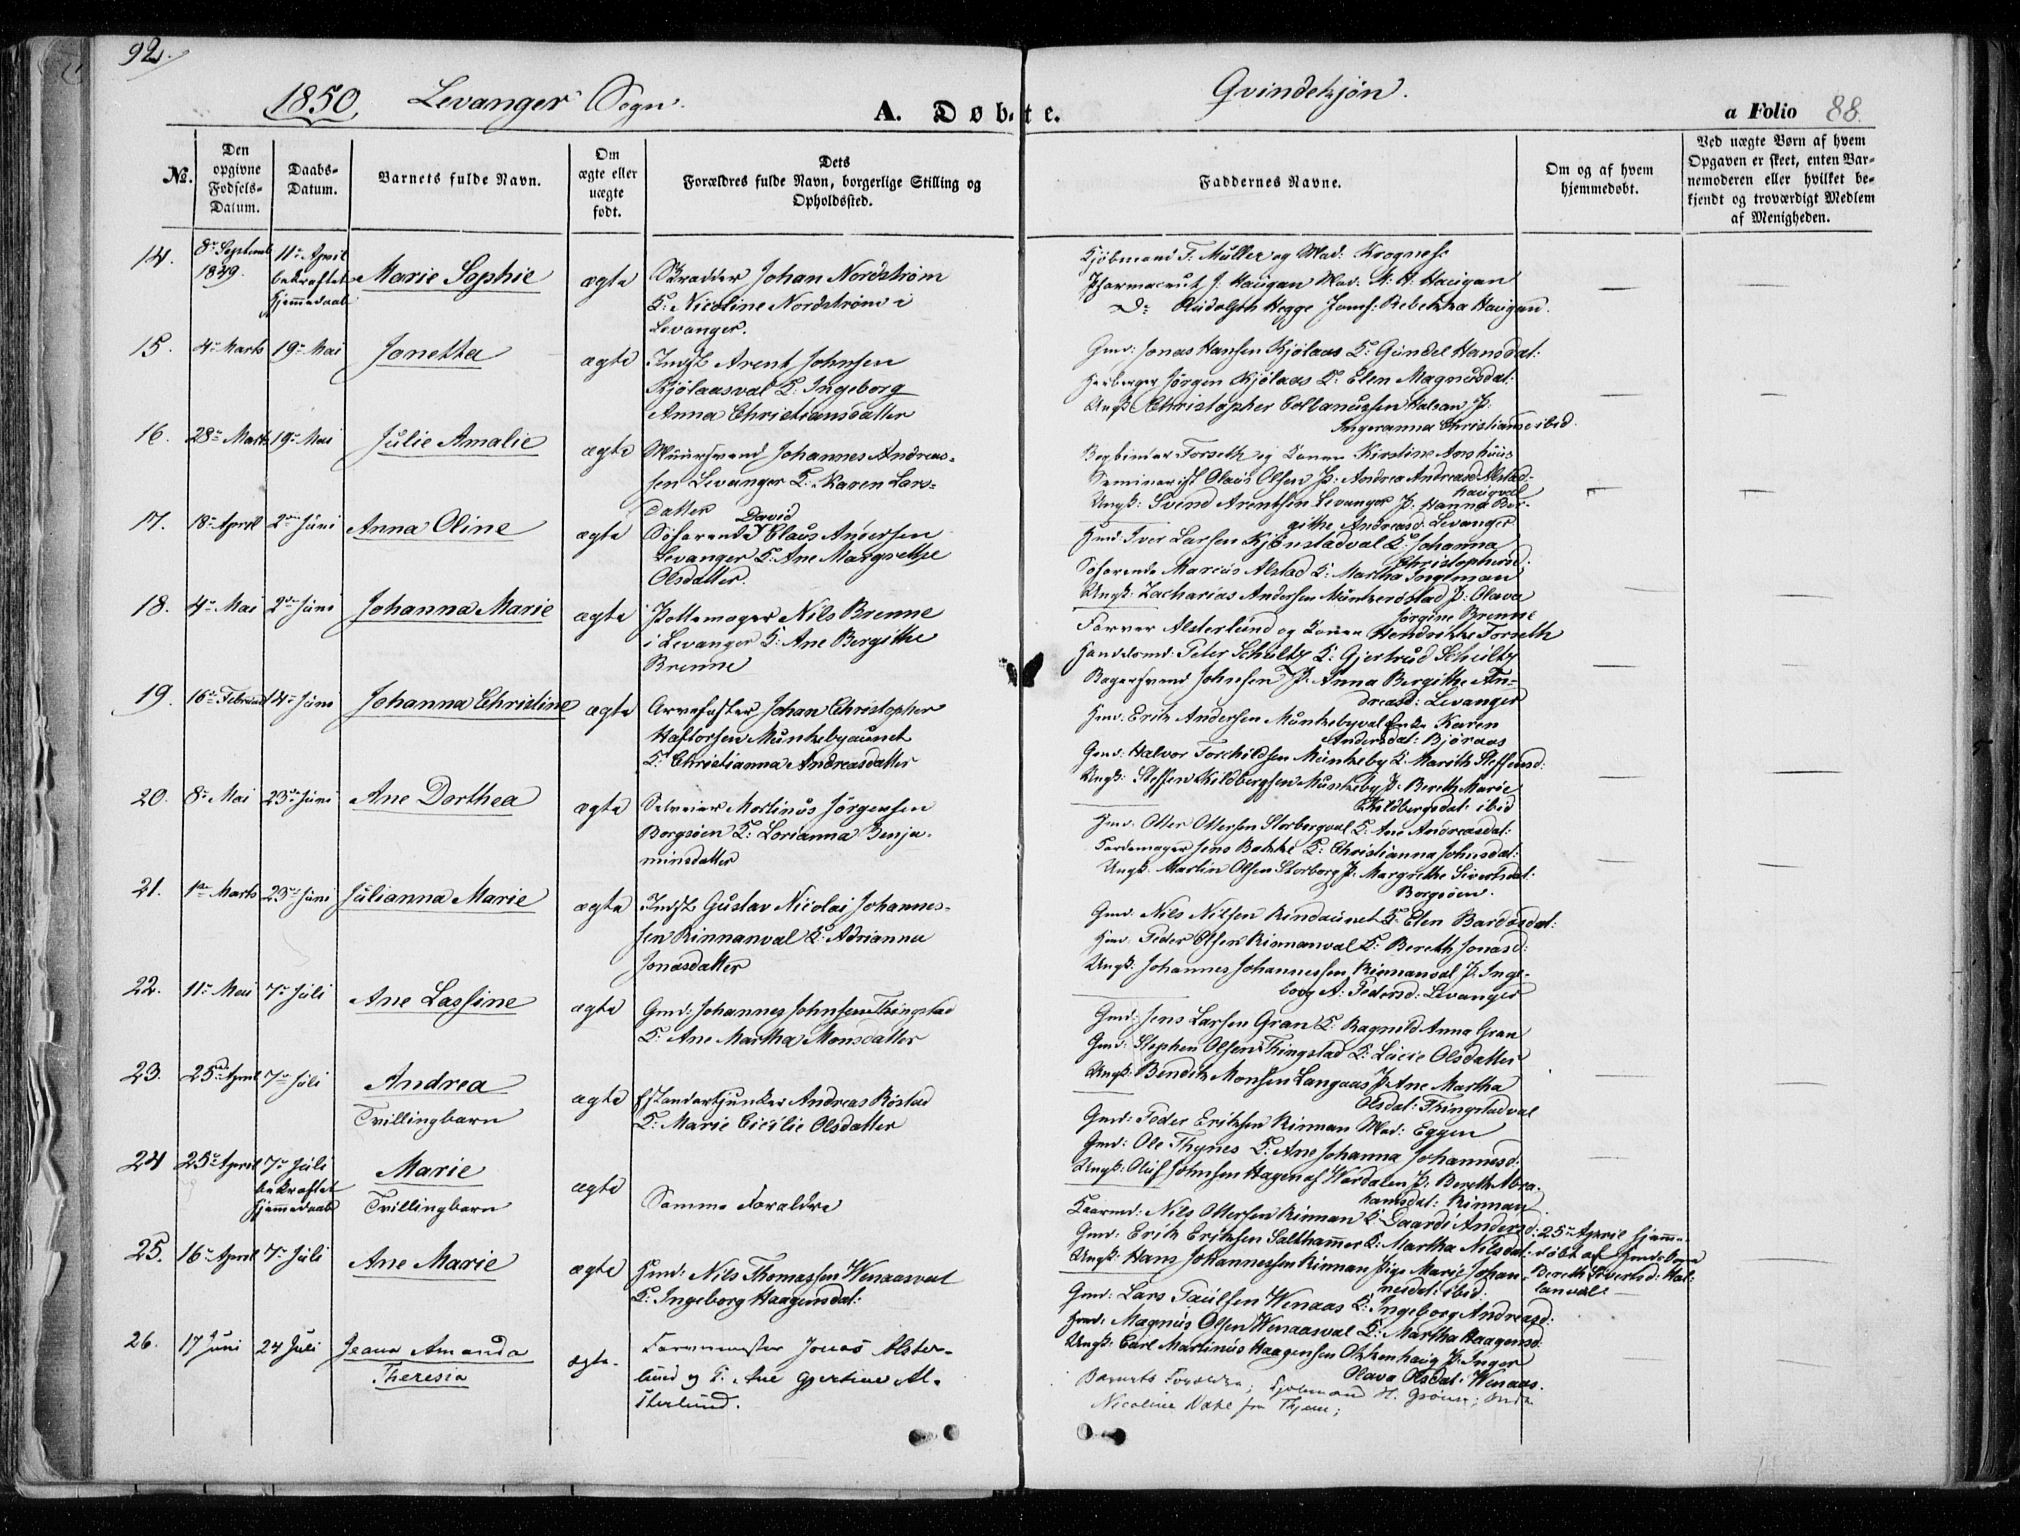 92.
1850 Levanger Sogn.
A. Døbte.
Qvindekjøn.
a Folio 88.
No.
Den opgivne Fødsels-Datum.
Daabs-Datum.
Barnets fulde Navn.
Om ægte eller uægte født.
Dets Forældres fulde Navn, borgerlige Stilling og Opholdssted.
Faddernes Navne.
Om og af hvem hjemmedøbt.
Ved uægte Børn af hvem Opgaven er skeet, enten Barnemoderen eller hvilket bekjendt og troværdigt Medlem af Menigheden.
14. 8de Septemb 1849. 11te April bekræftet Hjemmedaab Marie Sophie ægte
Skrædder Johan Nordstrøm
K: Nicoline Nordstrøm i
Levanger.
Kjøbmand F. Müller og Mad: Krogness
Pharmaceut J. Haugan Mad: A. H. Haugan
Do Rudolph Hegge Jomf: Rebekka Haugan.
15. 4de Marts 19de Mai Jonetta ægte
Indst Arent Johnsen
Kjølaasval K: Ingeborg
Anna Christiansdatter
Gmd: Jonas Hansen Kjølaas K: Gundel Hansdat:
Jørgen Kjølaas K: Elen Magnusdat:
Ungk: Christopher Halsan P:
Ingeranna Christiansd ibid.
16. 28de Marts 19de Mai Julie Amalie ægte
Muursvend Johannes Andreas-
sen Levanger K: Karen Lars-
datter
Bogbinder Forseth og Konen Kirstine Aushuus
Seminarist Olaus Olsen P: Andrea Andreasd Alstad-
haugval
Ungk: Svend Arentsen Levanger P: Hanna Ber-
githe Andreasd: Levanger
17. 18de April 2den Juni Anna Oline ægte
David
Søfarende Claus Andersen
Levanger K: Ane Margrethe
Olsdatter.
Hmd: Iver Larsen Kjønstadval K: Johanna
Christophersd:
Søfarende Marcus Alstad K: Martha Inglman
Ungk: Zacharias Andersen Munkerøstad P: Olava
Jørgine Brenne
18. 4de Mai 2den Juni Johanna Marie ægte
Pottemager Nils Brenne
i Levanger K: Ane Bergithe
Brenne
Farver Alsterlund og Konen Hendrikke Forseth
Handelsmd: Peter Schultz K: Gjertrud Schultz
Bagersvend Johnsen P: Anna Bergithe An-
dreasd: Levanger
19. 16de Februar 14de Juni Johanna Christine ægte
Arvefæster Johan Christopher
Haftorsen Munkebyaunet
K: Christianna Andreasdatter
Hmd: Erik Andersen Munkebyval Enke Karen
Andersdat: Bjøraas
Gmd: Halvor Torchildsen Munkeby K: Marith Steffensd:
Ungk: Steffen Kildbergsen Munkeby P: Bereth Marie
Kildbergsdat: ibid
20. 8de Mai 23de Juni Ane Dorthea ægte
Selveier Martinus Jørgensen
Borgsøen K: Lorianna Benja-
minsdatter
Hmd: Otter Ottersen Storborgval K: Ane Andreasdat:
Jens Bakke K: Christianna Johnsdat:
Ungk. Martin Olsen Storborg P: Margrethe Sivertsdat:
Borgsøen.
21. 1ste Marts 23de Juni Julianna Marie ægte
Indst Gustav Nicolai Johannes-
sen Rinnanval K: Adrianna
Jonasdatter
Gmd: Nils Nilsen Rindaunet K: Elen Bardosdat:
Hmd: Peder Olsen Rinnanval K: Bereth Jonasd:
Ungk: Johannes Johannessen Rinnanval P: Inge-
borg A: Pedersd: Levanger
22. 11te Mai 7de Juli Ane Lassine ægte
Gmd: Johannes Johnsen Thingstad
K: Ane Martha Monsdatter
Gmd: Jens Larsen Gran K: Ragnild Anna Gran
Gmd: Stephen Olsen Thingstad K: Lucie Olsdatter
Ungk: Bendik Monsen Langaas P: Ane Martha
Olsdat: Thingstadval
23. 25de April 7de Juli Andrea
Tvillingbarn ægte
Standartjunker Andreas Røstad
K: Marie Cicilie Olsdatter
Gmd: Peder Eriksen Rinnan Mad: Eggen
Gmd: Ole Thynes K: Ane Johanna Johannesd:
Ungk: Oluf Johnsen Hagen af Værdalen P: Bereth Abra-
hamsdat: Rinnan
24 25de April 7de Juli bekræftet Hjemmedaab Marie
Tvillingbarn ægte
Samme Forældre
Kaarmd: Nils Ottersen Rinnan K: Andersd:
Gmd: Erik Eriksen Salthammer K: Martha Nilsdat:
Ungk: Hans Johannessen Rinnan Pige Marie Johan-
nesdat: ibid.
25de April hjem-
døbt af
Bereth Sivertsd: Hal-
lanval
25. 16de April 7de Juli Ane Marie ægte
Hmd: Nils Thomassen Wenaasval
K: Ingeborg Haagensdat:
Gmd: Lars Paulsen Wenaas K: Ingeborg Andreasd:
Hmd: Magnus Olsen Wenaasval K: Martha Haagensd:
Ungk: Carl Martinus Haagensen Okkenhaug P: Inger
Olava Olsdat: Wenaas.
26. 17 Juni 24 Juli Jeana Amanda
Theresia ægte.
Farvemester Jonas Alster-
lund og K. Ane Gjertine Al-
sterlund.
Barnets Forældre; Kjøbmand H. Grønn;
Nicoline fra Thjem;